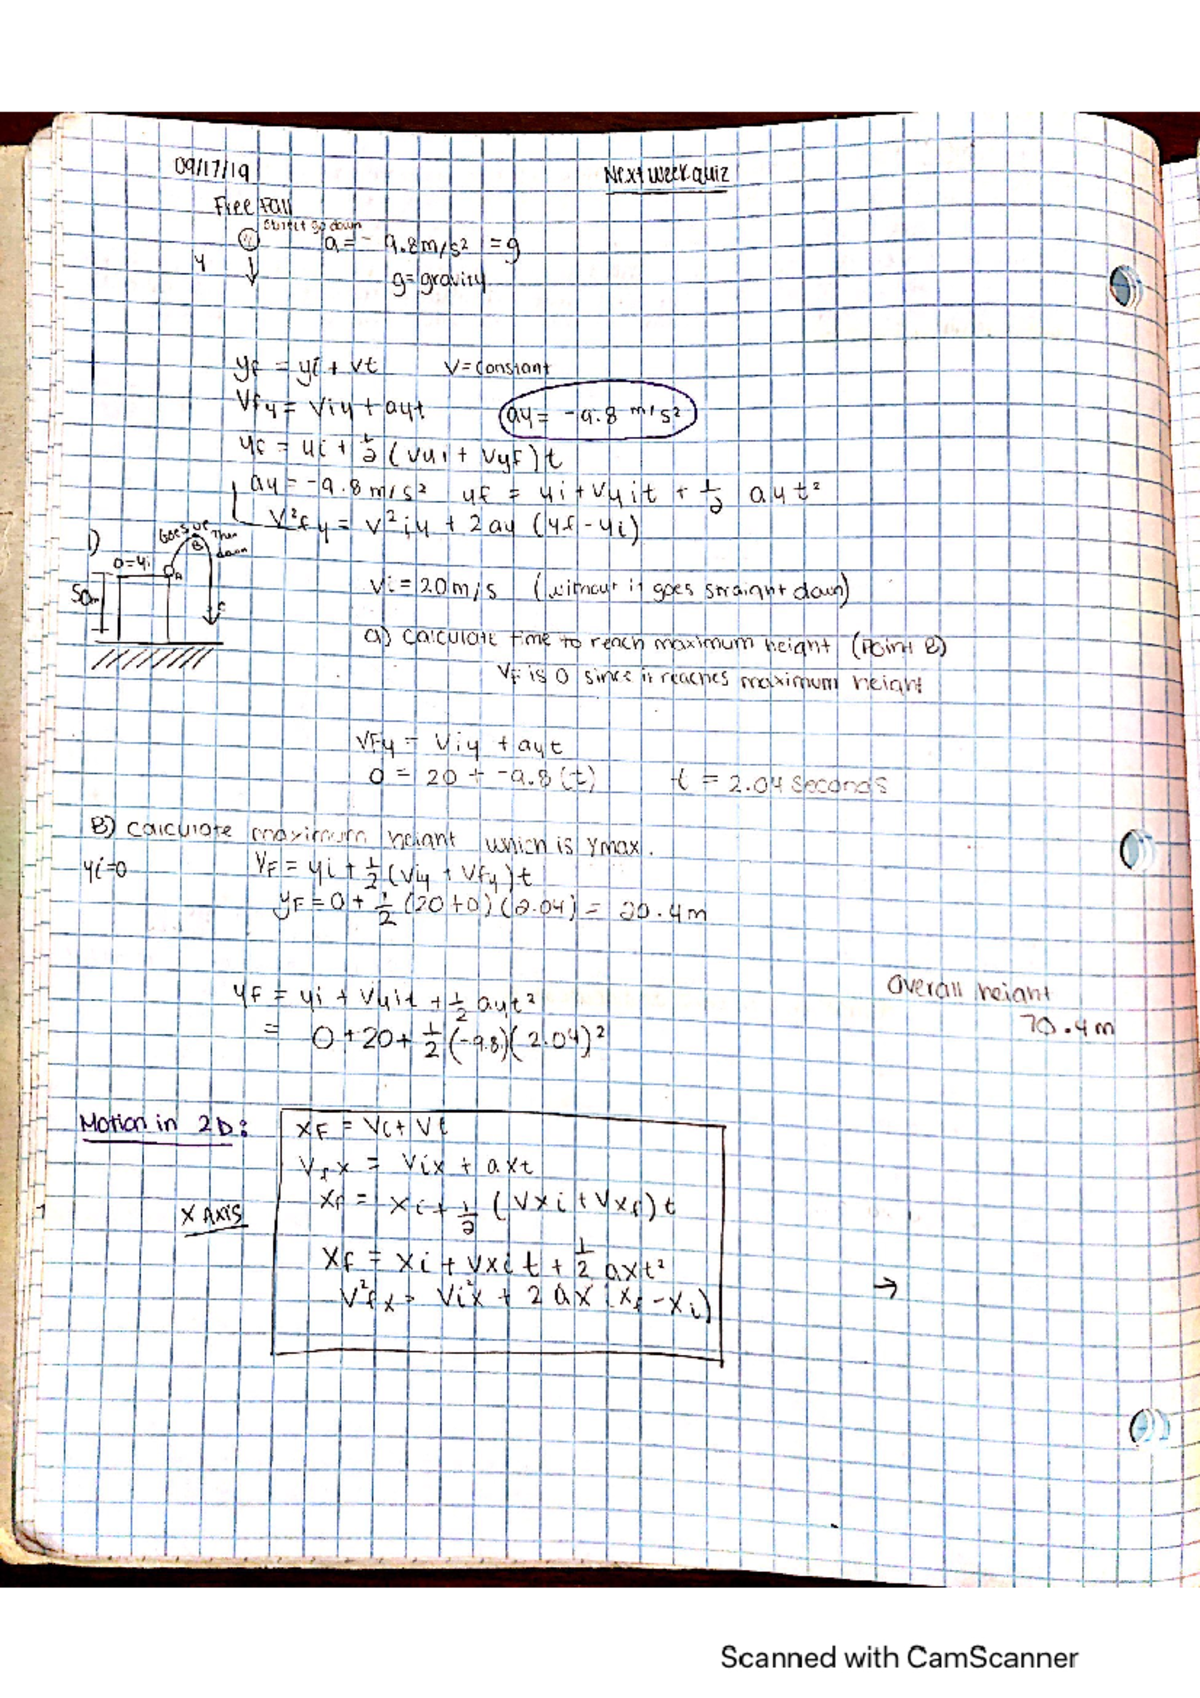 09/17/19
Next week quiz
Free Fall
object go down
a = - 9.8 m/s² = g
y
g = gravity
yf = yi + vt V = constant
Vfy = Viy + ayt ay = -9.8 m/s²
yf = yi + 1/2 (vyi + vyf) t
ay = -9.8 m/s² yf = yi + vyit + 1/2 ayt²
V²fy = v²iy + 2ay (yf - yi)
1)
Goes up Then down
B
0 = yi
A
50m
F
Vi = 20 m/s (without it goes straight down)
a) calculate time to reach maximum height (Point B)
VF is 0 since it reaches maximum height
VFy = Viy + ayt
0 = 20 + -9.8 (t) t = 2.04 seconds
B) calculate maximum height which is ymax.
yi=0 YF = yi + 1/2 (Viy + Vfy) t
YF = 0 + 1/2 (20+0) (2.04) = 20.4m
yF = yi + Vyit + 1/2 ayt²
= 0 + 20 + 1/2 (-9.8)(2.04)²
overall height
70.4m
Motion in 2D:
XF = Vi + Vt
Vfx = Vix + axt
X AXIS
Xf = Xi + 1/2 (Vxi + Vxf) t
Xf = Xi + Vxit + 1/2 axt²
V²fx = Vi²x + 2ax (Xf - Xi)
→
Scanned with CamScanner